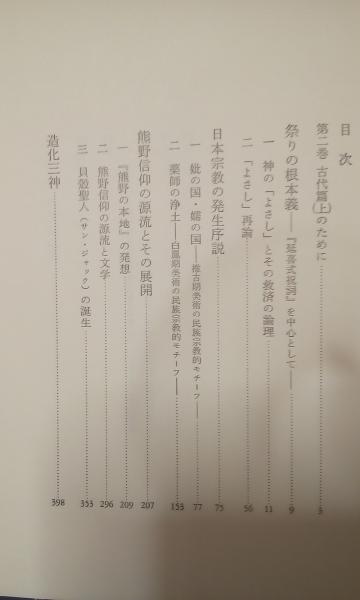 目次
第二巻 古代篇(上)のために 3
祭りの根本義――『延喜式祝詞』を中心として―― 9
一 神の「よさし」とその救済の論理 11
二 「よさし」再論 56
日本宗教の発生序説 75
一 妣の国・嬬の国――推古期美術の民族宗教的モチーフ―― 77
二 薬師の浄土――白鳳期美術の民族宗教的モチーフ―― 153
熊野信仰の源流とその展開 207
一 『熊野の本地』の発想 209
二 熊野信仰の源流と文学 296
三 貝殻聖人(サン・ジャック)の誕生 353
造化三神 398